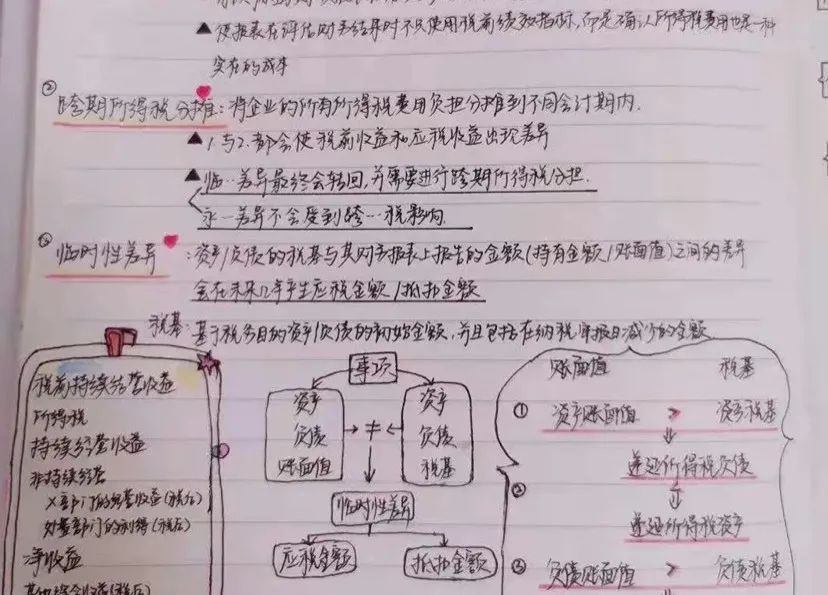 ▲使报表在评估财务结果时不只使用税前绩效指标,而是确认所得税费用也是一种
实在的成本
② 跨期所得税分摊:将企业的所有所得税费用负担分摊到不同会计期内.
▲1.与2.都会使税前收益和应税收益出现差异
▲临…差异最终会转回,并需要进行跨期所得税分担.
永…差异不会受到跨…税影响.
③ 临时性差异:资产/负债的税基与其财务报表上报告的金额(持有金额/账面值)之间的差异
会在未来几年产生应税金额/抵扣金额
税基:基于税务目的资产/负债的初始金额,并且包括在纳税申报日减少的金额
税前持续经营收益
所得税
持续经营收益
非持续经营
×部门的经营收益(税后)
处置部门的利得(税后)
净收益
其他综合收益(税后)
事项
资产
负债
账面值
→≠←
资产
负债
税基
临时性差异
应税金额
抵扣金额
账面值 税基
① 资产账面值 > 资产税基
递延所得税负债
②
递延所得税资产
③ 负债账面值 > 负债税基